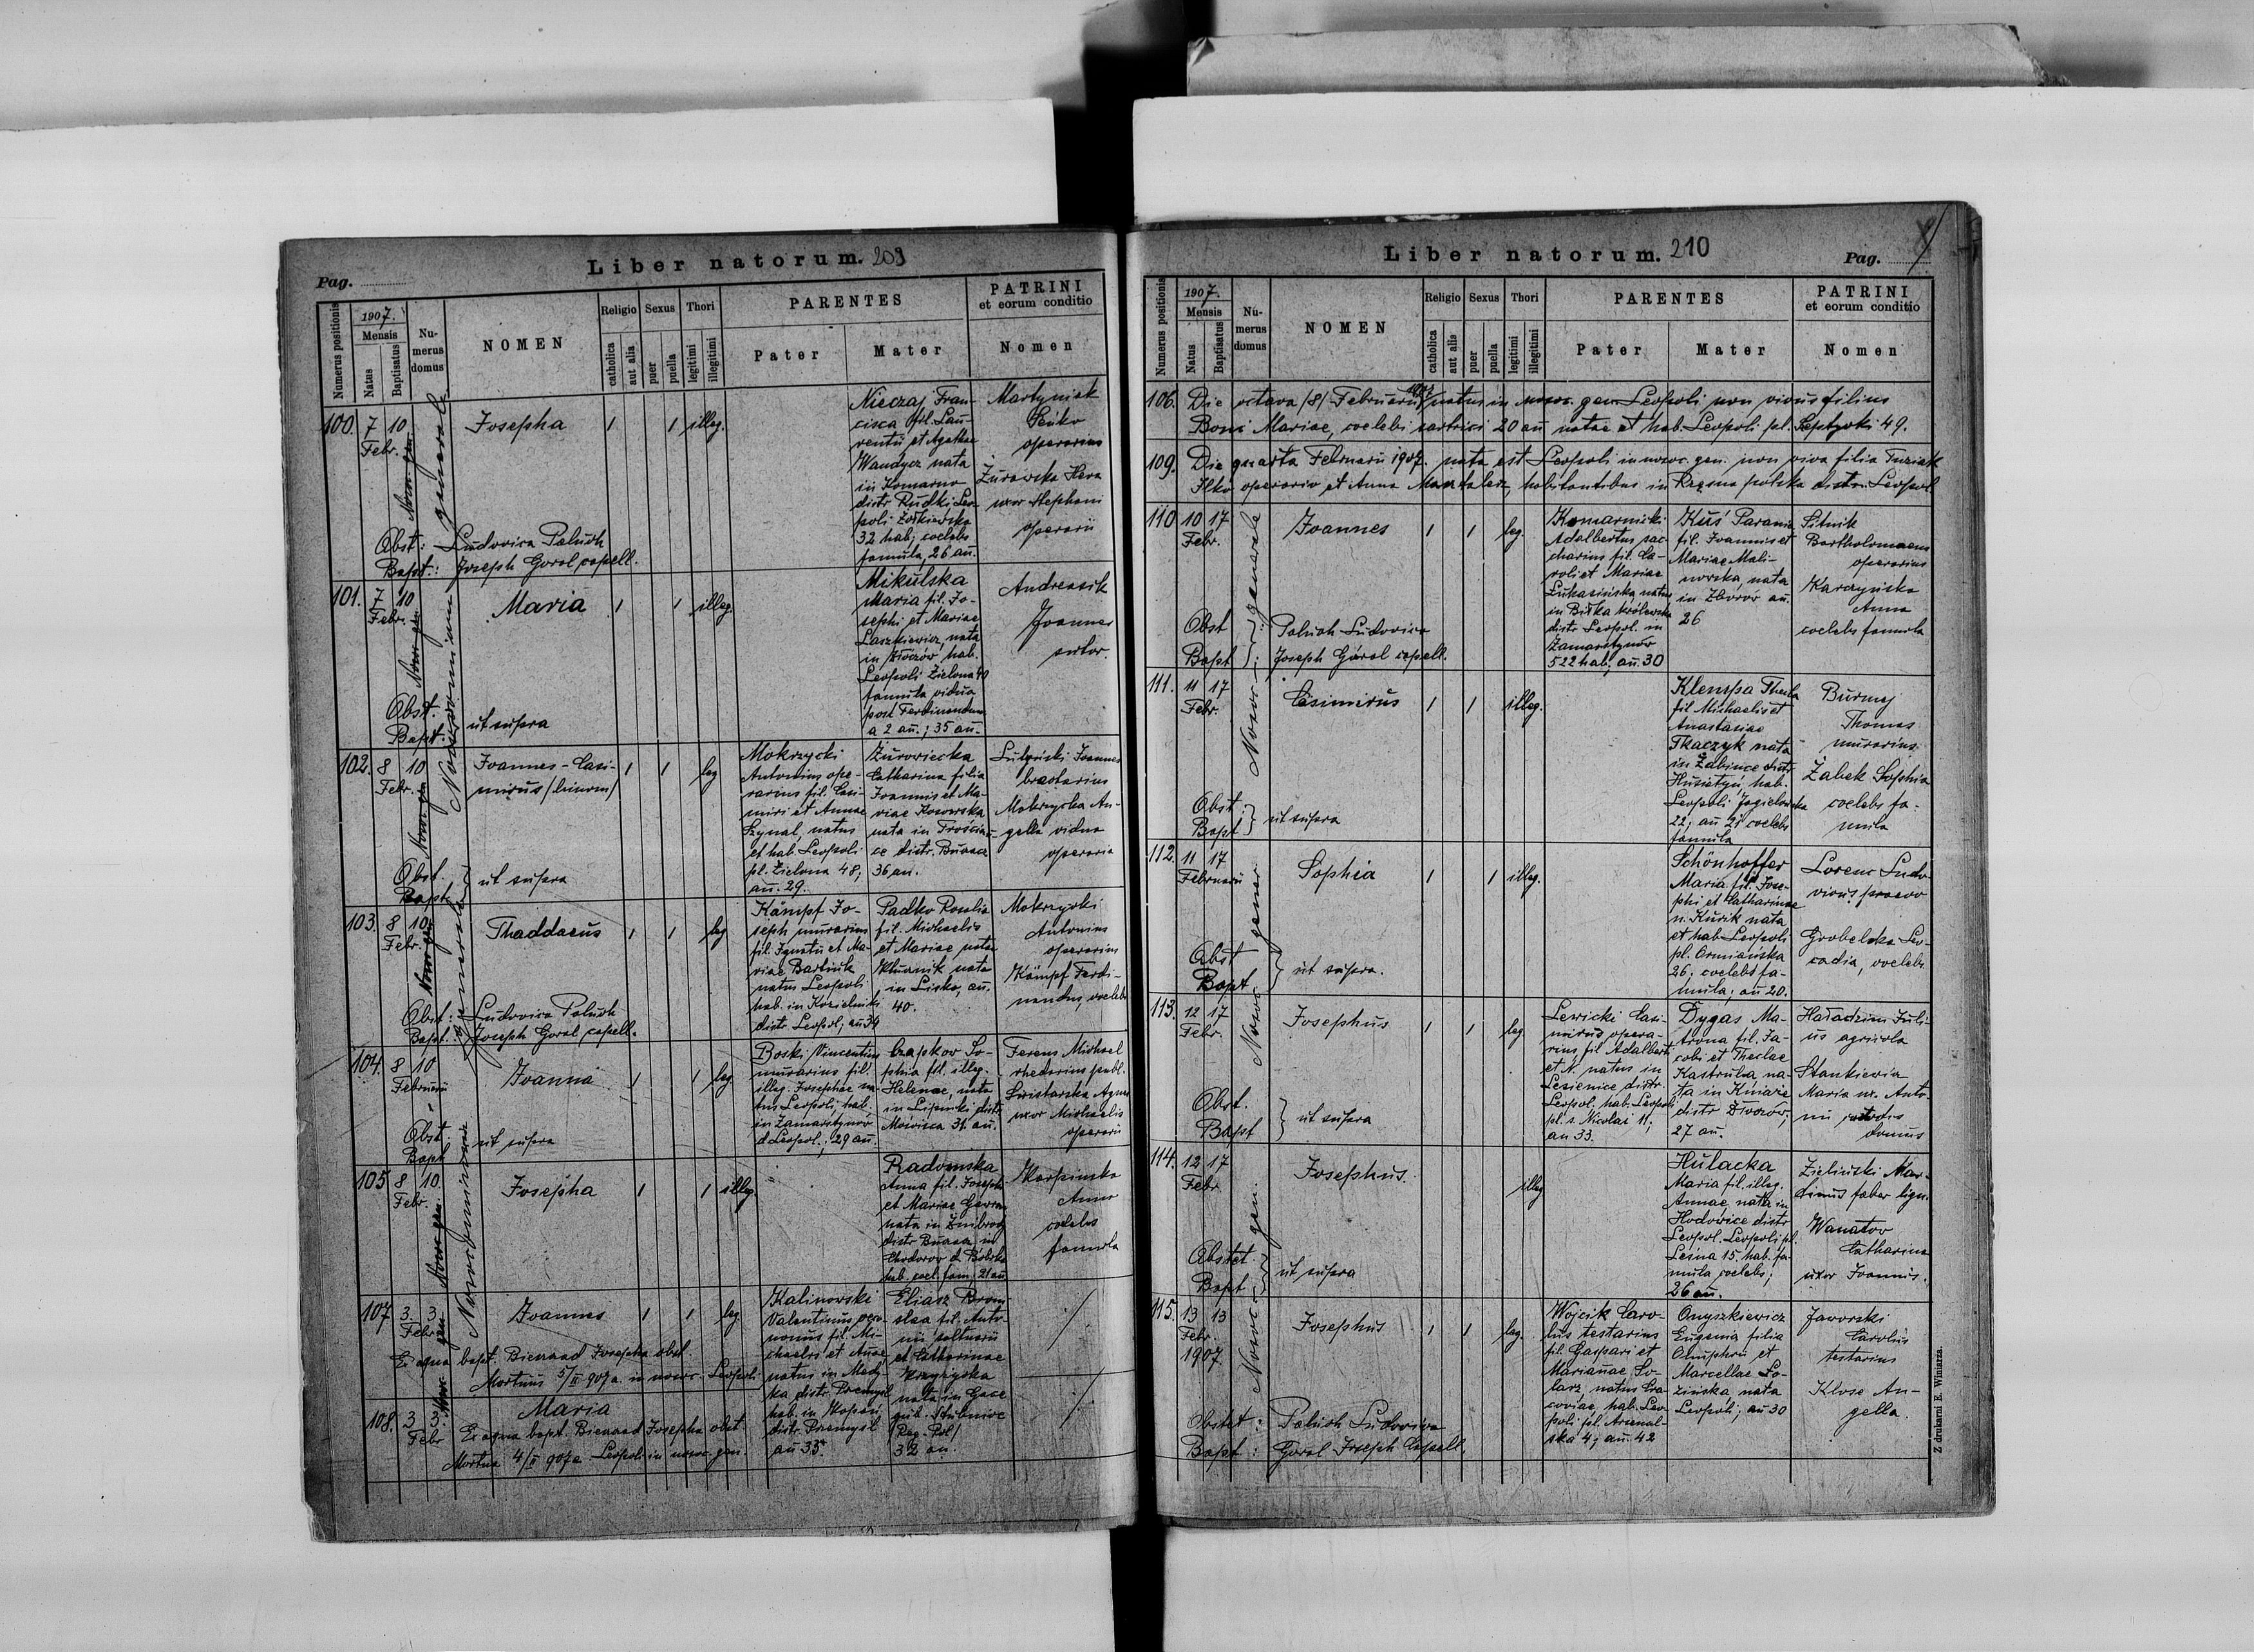 Liber natorum. 209
Pag.
Numerus positionis
1907.
Mensis
Natus
Baptisatus
Numerus domus
NOMEN
Religio
catholica
aut alia
Sexus
puer
puella
Thori
legitimi
illegitimi
PARENTES
Pater
Mater
PATRINI
et eorum conditio
Nomen
100. 7 10 Febr.
Josepha
1 1 illeg.
Nieczaj Fran-
cisca fil. Lau-
rentii et Agathae
Wandycz nata
in Komarno
distr. Rudki Leo-
poli Żółkiewska
32 hab; coelebs
famula, 26 an.
Martyniak
Seńko
operarius
Żurawska
uxor Stephani
operarii
Obst: Ludovica Paluch
Bapt.: Joseph Gorol capell.
101. 7 10 Febr.
Maria
1 1 illeg.
Mikulska
Maria fil. Jo-
sephi et Mariae
Laszkiewicz, nata
in Złoczów, hab.
Leopoli Zielona 40
famula vidua
post Ferdinandum
a 2 an.; 35 an.
Andreasik
Joannes
sutor.
Obst.
Bapt. ut supra
102. 8 10 Febr.
Joannes-Casi-
mirus
1 1 leg
Mokrzycki
Antonius ope-
rarius fil. Casi-
miri et Annae
Szynal, natus
et hab. Leopoli
pl. Zielona 48;
an. 29.
Żurowiecka
Catharina filia
Joannis et Ma-
riae Kosowska
nata in Trościan-
ce distr. Buczacz
36 an.
Joannes
Mokrzycka An-
gela vidua
operaria
Obst.
Bapt. ut supra
103. 8 10 Febr.
Thaddaeus
1 1 leg
Kämpf Jo-
seph murarius
fil. Ignatii et Ma-
riae Bartniuk
natus Leopoli
hab. in Kozielniki
distr. Leopol; an 34
Padko Rosalia
fil. Michaelis
et Mariae nata
in Lisko, an.
40.
Mokrzycki
Antonius
operarius
Kämpf Ferdi-
nandus, coelebs
Obst: Ludovica Paluch
Bapt: Joseph Gorol capell.
104. 8 10 Februarii
Joanna
1 1 leg.
Boski Vincentius
murarius fil.
illeg. Josephae na-
tus Leopoli, hab.
in Zamarstynów
d. Leopol.; 29 an.
Czapkov So-
phia fil. illeg.
Helenae, nata
in distr.
Mościsca 31 an.
Ferens Michael
rhedarius publ.
uxor Michaelis
operarii
Obst
Bapt ut supra
105 8 10. Febr.
Josepha
1 1 illeg.
Radomska
Anna fil. Josephi
et Mariae
nata in
distr Buczacz in
Chodorow d. Bóbrka
hab coel. fam. 21 an
Karpinska
Anna
coelebs
famula
107 3 3. Febr.
Joannes
1 1 leg
Kalinowski
Valentinus oeco-
nomus fil. Mi-
chaelis et Annae
natus in Medy-
ka distr. Przemysl
hab. in
distr. Przemysl
an 35.
Eliasz Broni-
slaa fil. Anto-
nii
et Catharinae
Krzyżycka
nata in Gace
gub.
Reg. Pol
32 an.
Ex aqua bapt. Bienaad Josepha obst.
Mortuus 5/II 907 a. in nosoc. Leopoli.
108. 3 3. Febr
Maria
Ex aqua bapt. Bienaad Josepha obst.
Mortua 4/II 907 a Leopoli in nosoc. gen.
Nosocomium generale
Liber natorum. 210
Pag.
Numerus positionis
1907.
Mensis
Natus
Baptisatus
Numerus domus
NOMEN
Religio
catholica
aut alia
Sexus
puer
puella
Thori
legitimi
illegitimi
PARENTES
Pater
Mater
PATRINI
et eorum conditio
Nomen
106. Die octava /8/ Februarii 1907 natus in nosoc. gen. Leopoli non vivus filius
Boni Mariae, coelebi sartrici 20 an natae et hab. Leopoli pl. Septycki 49.
109. Die quarta Februarii 1907. nata est Leopoli in nosoc. gen. non viva filia
Ilko operario et Anna habitantibus in Rzęsna polska distr. Leopol
110 10 17 Febr.
Joannes
1 1 leg.
Komarnicki
Adalbertus sac-
charius fil. Ca-
roli et Mariae
Łukasińska natus
in Biłka królewska
distr Leopol. in
Zamarstynów
522 hab; an. 30
Kuś Paranie
fil. Joannis et
Mariae Mali-
nowska, nata
in Zborów an.
26
Sitnik
Bartholomaeus
operarius
Karczyńska
Anna
coelebs famula
Obst Paluch Ludovica
Bapt Joseph Górol capell.
111. 11 17 Febr.
Casimirus
1 1 illeg.
Klempa Thecla
fil Michaelis et
Anastasiae
Tkaczyk nata
in Żabince distr
Husiatyń, hab.
Leopoli Jagielońska
22; an 21 coelebs
famula
Burmej
Thomas
murarius.
Żabek Sophia
coelebs fa-
mula
Obst
Bapt ut supra
112. 11 17 Februarii
Sophia
1 1 illeg.
Schönhoffer
Maria fil. Jose-
phi et Catharinae
n. Kurik nata
et hab. Leopoli
pl. Ormiańska
26; coelebs fa-
mula; an 20.
Lorenc Ludo-
vicus
Grobelska Leo-
cadia, coelebs
Obst
Bapt ut supra.
113. 12 17 Febr.
Josephus
1 1 leg
Lewicki Casi-
mirus opera-
rius fil Adalberti
et N. natus in
Lesienice distr.
Leopol. hab. Leopoli
pl. s. Nicolai 11;
an 33.
Dygas Ma-
trona fil. Ja-
cobi et Theclae
Kastrula na-
ta in Kniaże
distr Złoczów;
27 an.
Juli-
us agricola
Stankiewicz
Maria ux. Anto-
nii custodis
domus
Obst.
Bapt ut supra
114. 12 17 Febr
Josephus.
illeg
Hulacka
Maria fil. illeg.
Annae, nata in
Hodowice distr
Leopol. Leopoli pl.
Leśna 15. hab. fa-
mula coelebs;
26 an.
Zieliński Mar-
tinus faber lign.
Wanatow
Catharina
uxor Joannis.
Obstet.
Bapt ut supra
115. 13 13 Febr. 1907
Josephus
1 1 leg.
Wojcik Caro-
lus testarius
fil. Gaspari et
Mariannae So-
larz, natus Cra-
coviae, hab. Leo-
poli pl. Arsenal-
ska 4; an. 42
Onyszkiewicz
Eugenia filia
Onuphrii et
Marcellae Ło-
zińska nata
Leopoli; an 30
Jaworski
Carolus
testarius
Klose An-
gella
Obstet: Paluch Ludovica
Bapt: Gorol Joseph Capell.
Nosoc. generale
Z drukarni E. Winiarza.